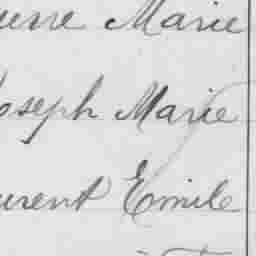 erre Marie
Joseph Marie
urent Emile